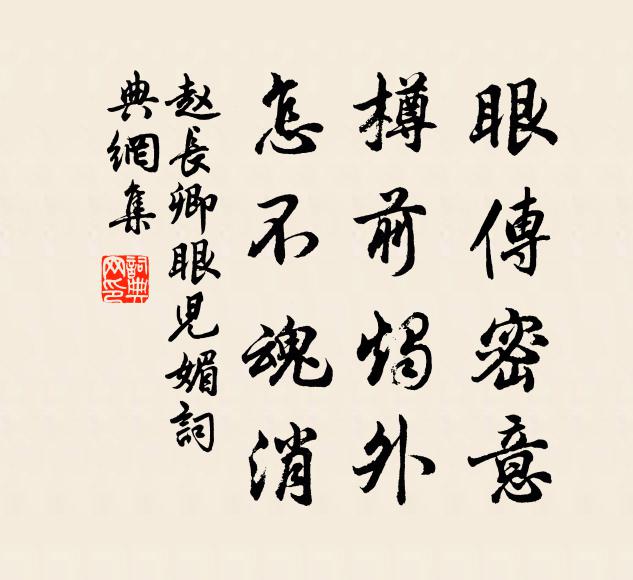 眼傳密意
樽前燭外
怎不魂消
赵長卿眼児媚詞
典網集
詞典網印